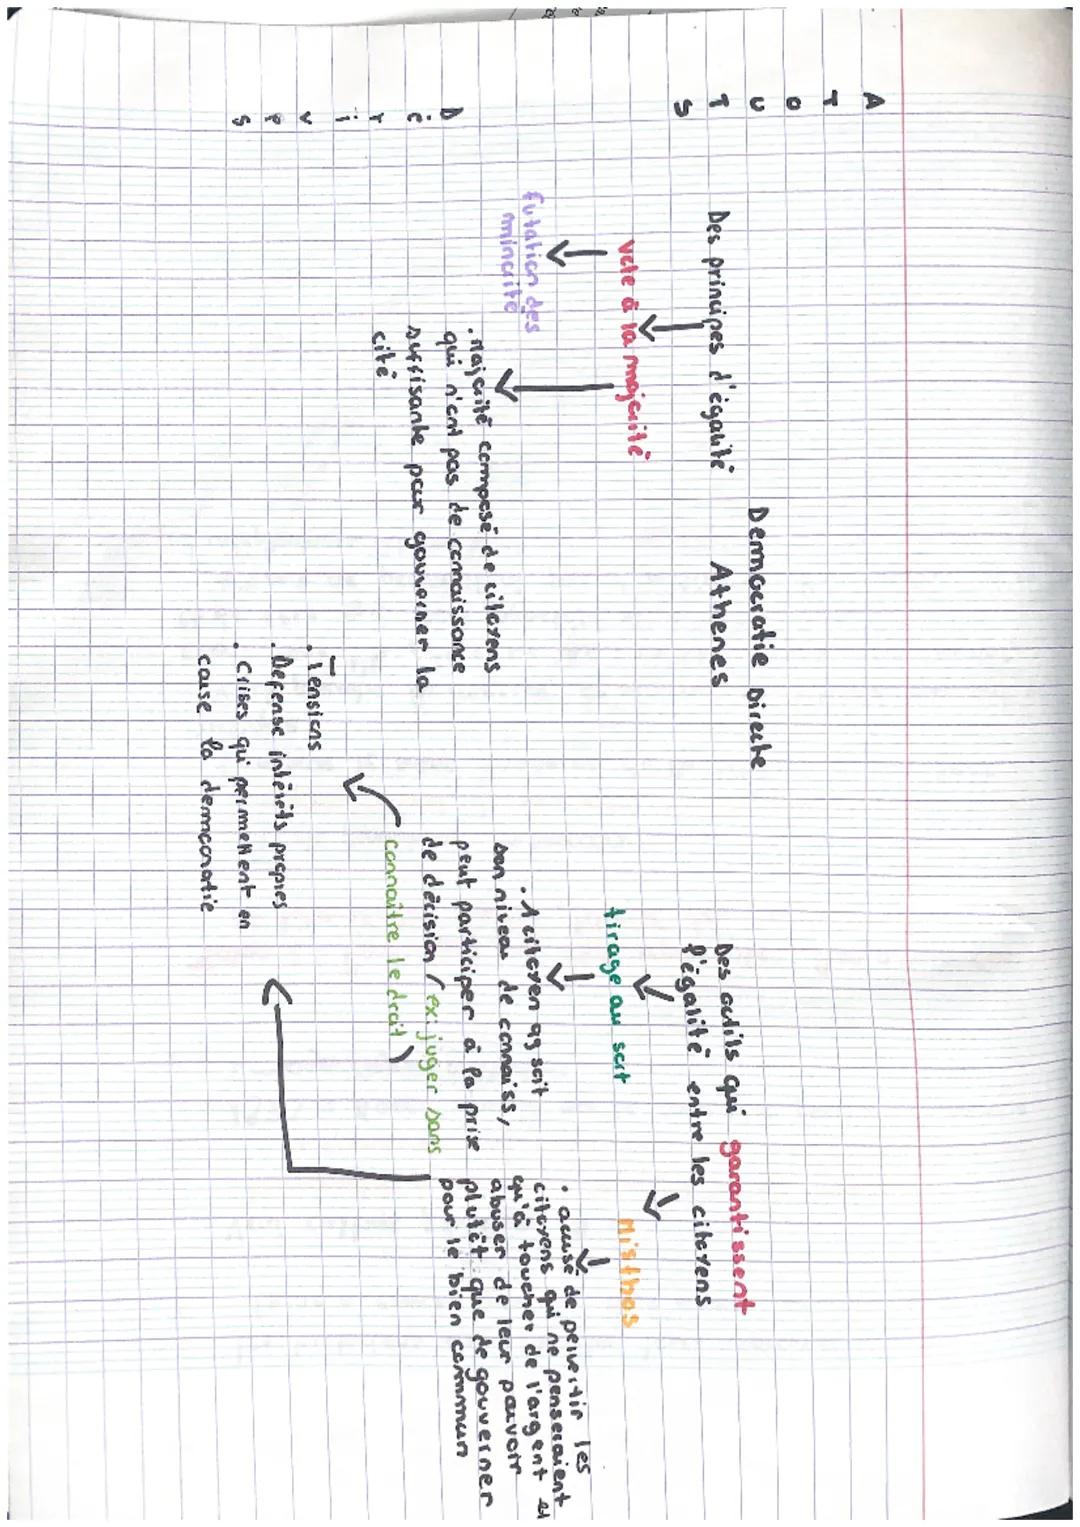 A
T
O
U
T
S
Democratie Directe
Athenes
Des principes d'égalité
vote à la majorité
futation des
minorité
. Majorité composé de citoyens
qui n'ont pas de connaissance
suffisante pour gouverner la
cité
Des outils qui garantissent
l'égalité entre les citoyens
tirage au sort
. 1 citoyen qq soit
son niveau de connaiss,
peut participer à la prise
de décision (ex: juger sans
connaitre le droit)
Misthos
. accusé de pervertir les
citoyens qui ne penseraient
qu'à toucher de l'argent et
abuser de leur pouvoir
plutôt que de gouverner
pour le bien commun
D
é
r
i
v
e
s
. Tensions
. Defense intérêts propres
. Crises qui permettent en
cause la democratie